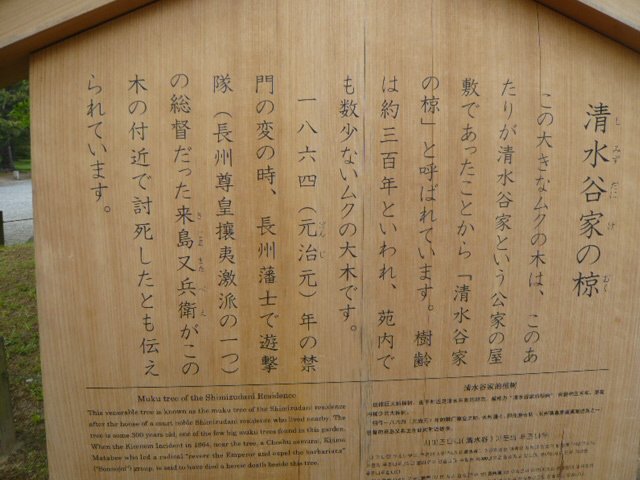 清水谷家の椋
しみずだにけ むく
この大きなムクの木は、このあ
たりが清水谷家という公家の屋
敷であったことから「清水谷家
の椋」と呼ばれています。樹齢
は約三百年といわれ、苑内で
も数少ないムクの大木です。
一八六四（元治元）年の禁
げんじ
門の変の時、長州藩士で遊撃
隊（長州尊皇攘夷激派の一つ）
の総督だった来島又兵衛がこの
きじままたべえ
木の付近で討死したとも伝え
られています。
Muku tree of the Shimizudani Residence
This venerable tree is known as the muku tree of the Shimizudani residence
after the house of a court noble Shimizudani residence who lived nearby. The
tree is some 300 years old, one of the few big muku trees found in this garden.
When the Kinmon Incident in 1864, near the tree, a Choshu samurai, Kijima
Matabee who led a radical "revere the Emperor and expel the barbarians"
("Sonnojoi") group, is said to have died a heroic death beside this tree.
清水谷家的椋树